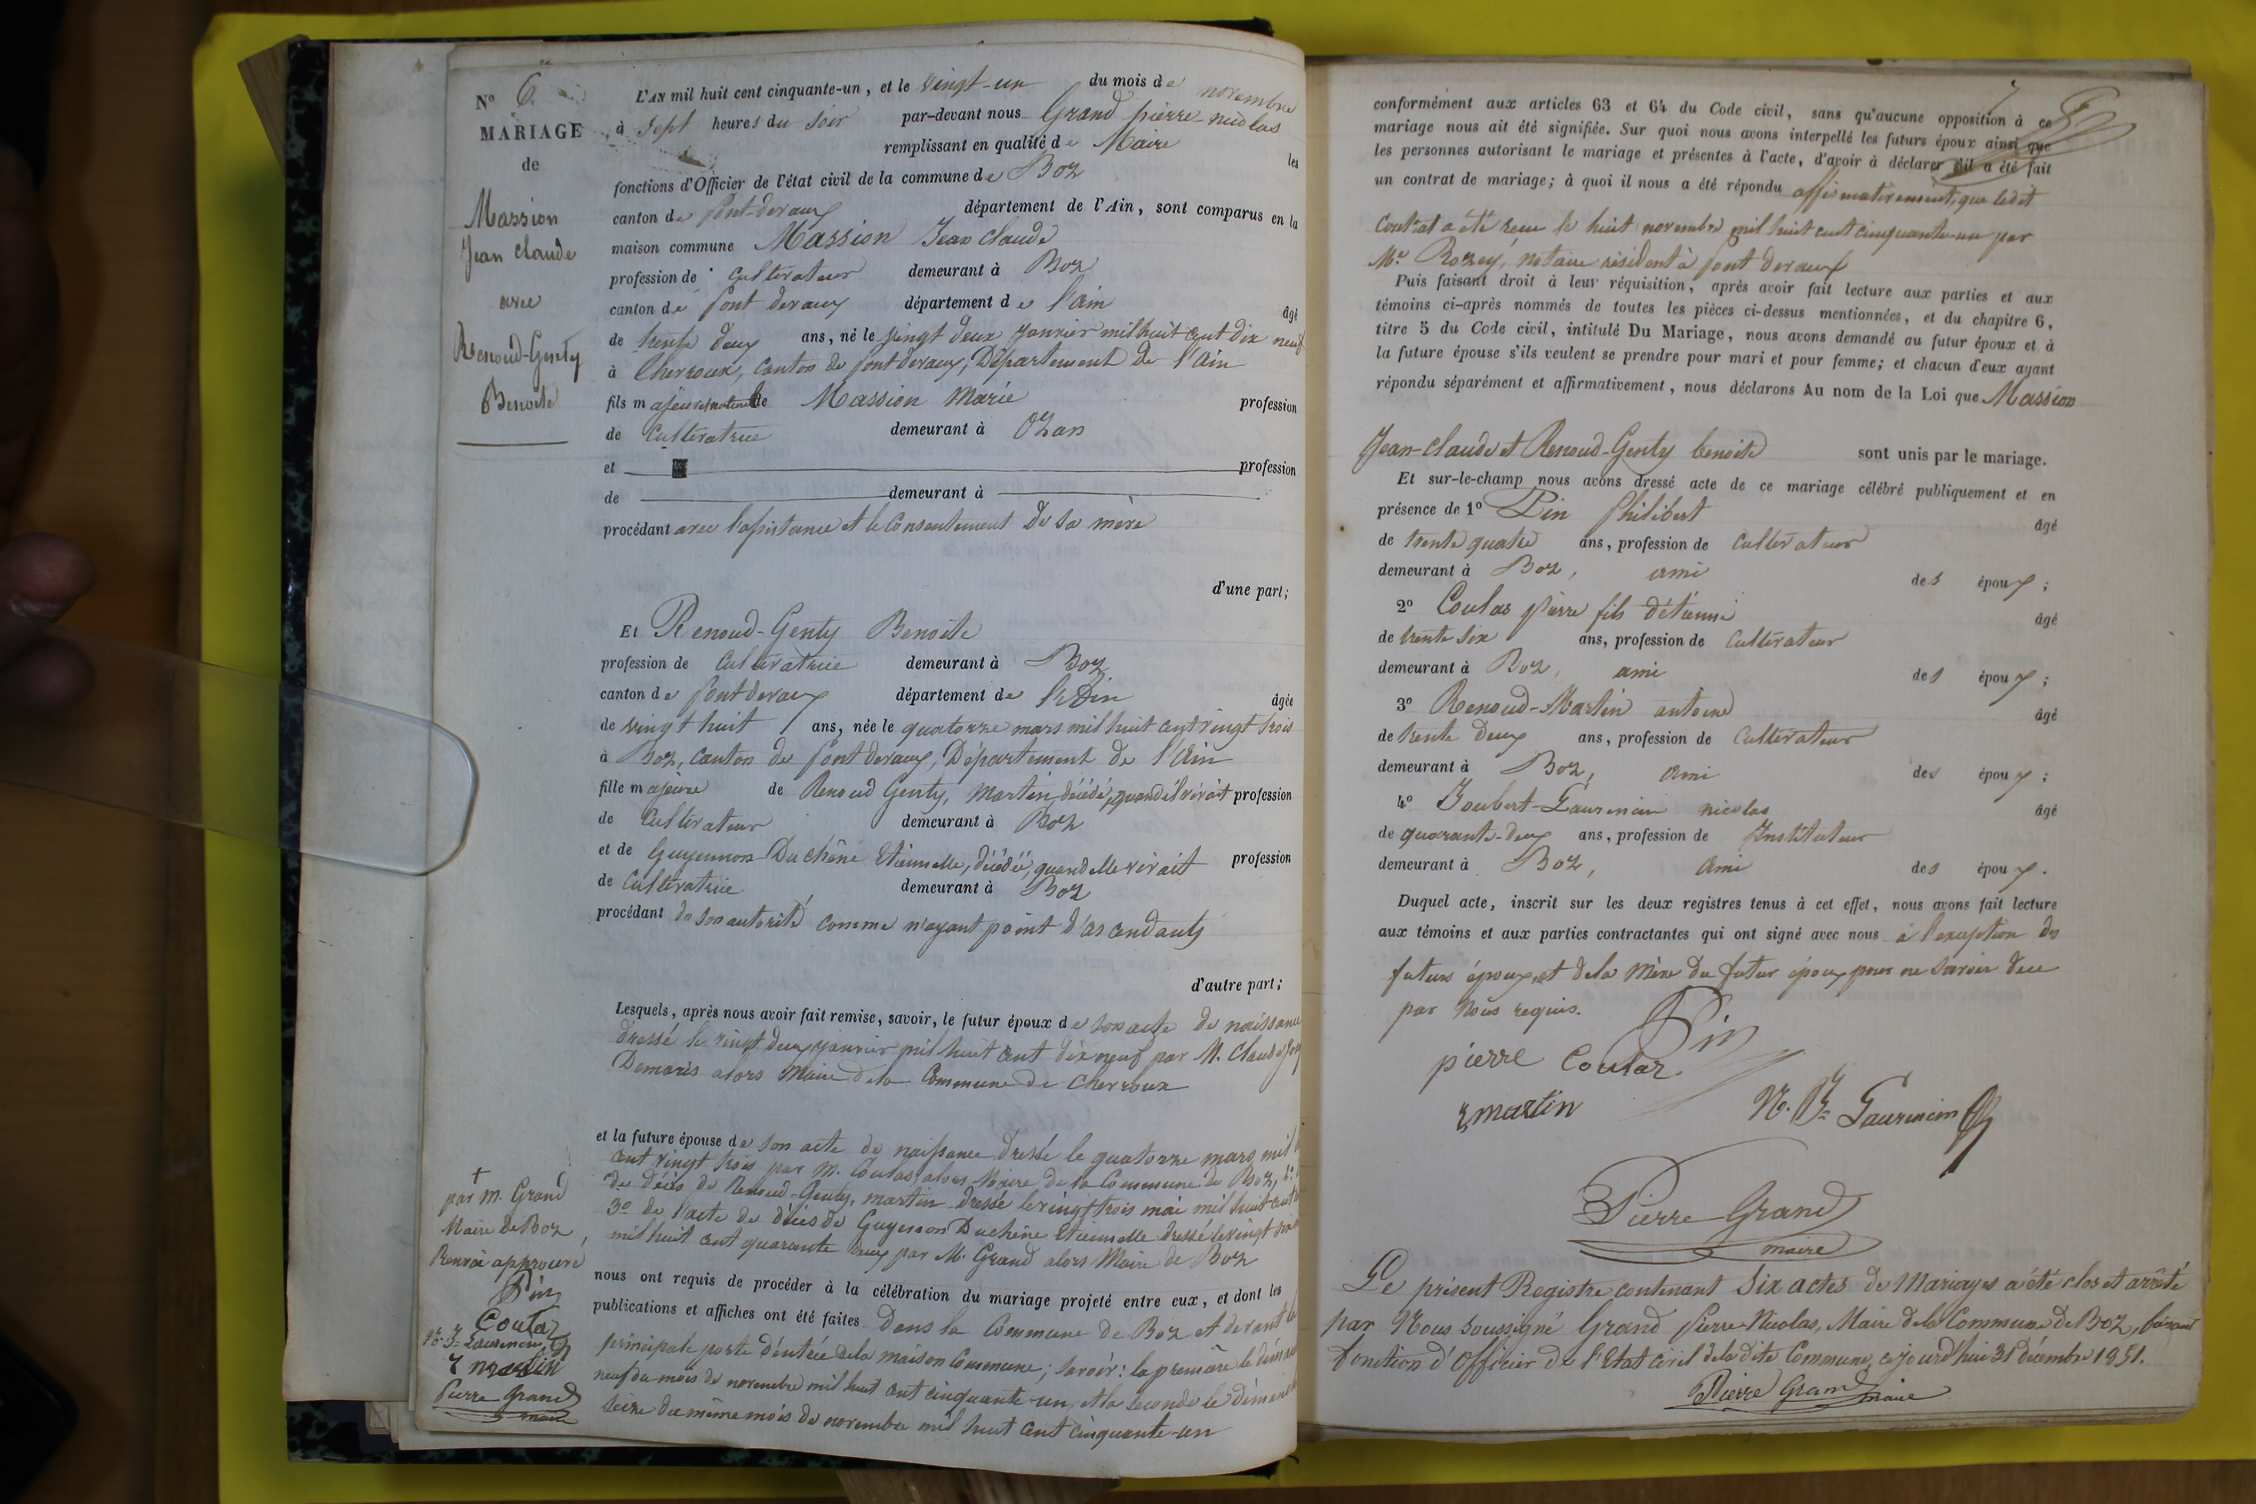 N° 6
MARIAGE
de
Massion
Jean Claude
avec
Renoud-Genty
Benoite
L'AN mil huit cent cinquante-un, et le vingt-un du mois de novembre
à sept heures du soir par-devant nous Grand pierre nicolas
remplissant en qualité de Maire les
fonctions d'Officier de l'état civil de la commune de Boz
canton de pont-devaux département de l'Ain, sont comparus en la
maison commune Massion Jean Claude
profession de Cultivateur demeurant à Boz
canton de pont devaux département de l'ain âgé
de trente deux ans, né le vingt deux janvier mil huit cent dix neuf
à Chevroux, canton de pont devaux, Département de l'Ain
fils majeur naturel de Massion Marie profession
de Cultivatrice demeurant à Ozan
et profession
de demeurant à
procédant avec l'assistance et le consentement de sa mère
d'une part;
Et Renoud-Genty Benoite
profession de Cultivatrice demeurant à Boz
canton de pont devaux département de l'Ain âgée
de vingt huit ans, née le quatorze mars mil huit cent vingt trois
à Boz, canton de pont devaux, Département de l'Ain
fille majeure de Renoud Genty, Martin, décédé, quand il vivait profession
de Cultivateur demeurant à Boz
et de Guyennon Duchêne Etiennette, décédée, quand elle vivait profession
de Cultivatrice demeurant à Boz
procédant de son autorité comme n'ayant point d'ascendants
d'autre part;
Lesquels, après nous avoir fait remise, savoir, le futur époux de son acte de naissance
dressé le vingt deux janvier mil huit cent dix neuf par M. Claude
alors Maire de la Commune de Chevroux
et la future épouse de son acte de naissance dressé le quatorze mars mil
cent vingt trois par M. Coulas, alors Maire de la Commune de Boz,
de décès de Renoud-Genty, martin dressé le vingt trois mai mil huit cent
3° de l'acte de décès de Guyennon Duchêne Etiennette dressé le vingt
mil huit cent quarante deux par M. Grand alors Maire de Boz
nous ont requis de procéder à la célébration du mariage projeté entre eux, et dont les
publications et affiches ont été faites Dans la Commune de Boz et devant la
principale porte d'entrée de la maison Commune; savoir: la première le dimanche
neuf du mois de novembre mil huit cent cinquante-un, et la seconde le dimanche
seize du même mois de novembre mil huit cent cinquante-un
+
par M. Grand
Maire de Boz,
Renvoi approuvé
Pin
Coulas
N. Jt Laurencin
r martin
Pierre Grand
maire
7
conformément aux articles 63 et 64 du Code civil, sans qu'aucune opposition à ce
mariage nous ait été signifiée. Sur quoi nous avons interpellé les futurs époux ainsi que
les personnes autorisant le mariage et présentes à l'acte, d'avoir à déclarer s'il a été fait
un contrat de mariage; à quoi il nous a été répondu affirmativement, que ledit
Contrat a été reçu le huit novembre mil huit cent cinquante-un par
Me notaire résident à pont devaux
Puis faisant droit à leur réquisition, après avoir fait lecture aux parties et aux
témoins ci-après nommés de toutes les pièces ci-dessus mentionnées, et du chapitre 6,
titre 5 du Code civil, intitulé Du Mariage, nous avons demandé au futur époux et à
la future épouse s'ils veulent se prendre pour mari et pour femme; et chacun d'eux ayant
répondu séparément et affirmativement, nous déclarons Au nom de la Loi que Massion
Jean-Claude et Renoud-Genty benoite sont unis par le mariage.
Et sur-le-champ nous avons dressé acte de ce mariage célébré publiquement et en
présence de 1° Pin Philibert âgé
de trente quatre ans, profession de Cultivateur
demeurant à Boz, ami des époux;
2° Coulas pierre fils d'étienne âgé
de trente six ans, profession de Cultivateur
demeurant à Boz, ami des époux;
3° Renoud-Martin antoine âgé
de trente deux ans, profession de Cultivateur
demeurant à Boz, ami des époux;
4° Joubert-Laurencin nicolas âgé
de quarante-deux ans, profession de Instituteur
demeurant à Boz, ami des époux.
Duquel acte, inscrit sur les deux registres tenus à cet effet, nous avons fait lecture
aux témoins et aux parties contractantes qui ont signé avec nous à l'exception des
futurs époux, et de la Mère du futur époux pour ne savoir de ce
par Nous requis.
Pin
pierre Coulas.
r martin
N. Jt Laurencin
Pierre Grand
maire
Le présent Registre contenant Six actes de Mariages a été clos et arrêté
par Nous soussigné Grand Pierre Nicolas, Maire de la Commune de Boz, faisant
fonction d'Officier de l'Etat civil de la dite Commune, ce jourd'hui 31 décembre 1851.
Pierre Grand maire